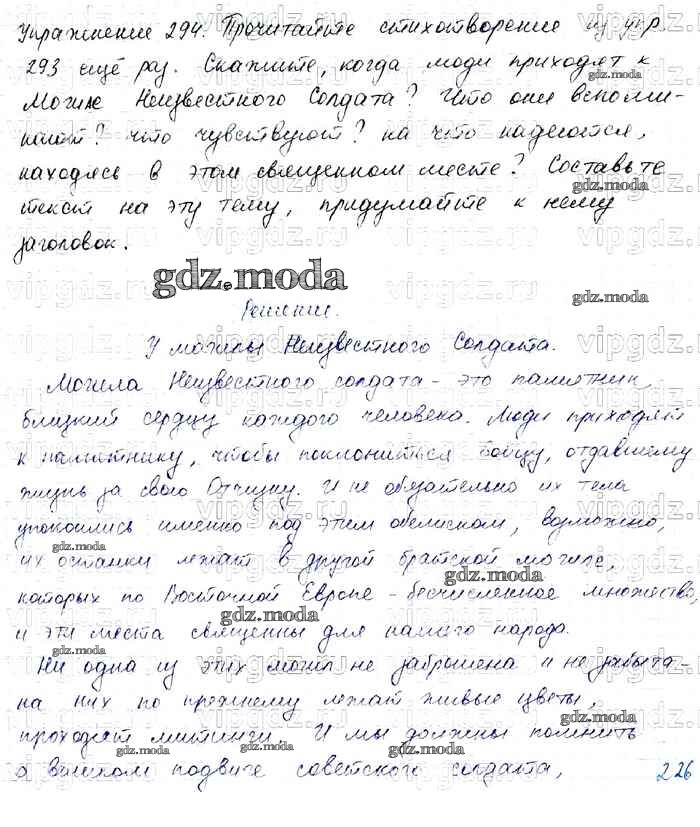 Упражнение 294. Прочитайте стихотворение из упр.
293 ещё раз. Скажите, когда люди приходят к
Могиле Неизвестного Солдата? Что они вспоми-
нают? что чувствуют? на что надеются,
находясь в этом священном месте? Составьте
текст на эту тему, придумайте к нему
заголовок.
gdz.moda
Решение.
У могилы Неизвестного Солдата.
Могила Неизвестного солдата - это памятник,
близкий сердцу каждого человека. Люди приходят
к памятнику, чтобы поклониться бойцу, отдавшему
жизнь за свою Отчизну. И не обязательно их тела
упокоились именно под этим обелиском, возможно,
их останки лежат в другой братской могиле,
которых по Восточной Европе - бесчисленное множество,
и эти места священны для нашего народа.
Ни одна из этих могил не заброшена и не забыта -
на них по прежнему лежат живые цветы,
проходят митинги. И мы должны помнить
о великом подвиге советского солдата,
226